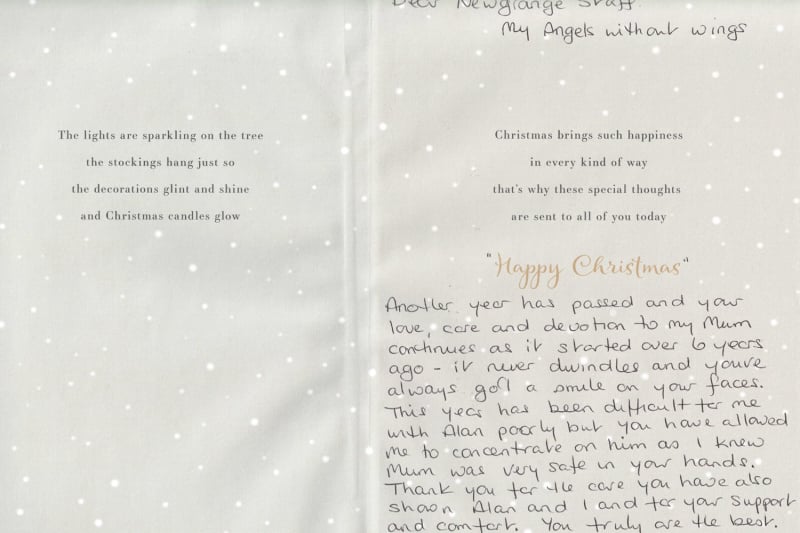 The lights are sparkling on the tree
the stockings hang just so
the decorations glint and shine
and Christmas candles glow
Dear Newgrange Staff.
My Angels without wings
Christmas brings such happiness
in every kind of way
that's why these special thoughts
are sent to all of you today
"Happy Christmas"
Another year has passed and your
love, care and devotion to my Mum
continues as it started over 6 years
ago - it never dwindles and youve
always got a smile on your faces.
This year has been difficult for me
with Alan poorly but you have allowed
me to concentrate on him as I knew
Mum was very safe in your hands.
Thank you for the care you have also
shown Alan and I and for your support
and comfort. You truly are the best.